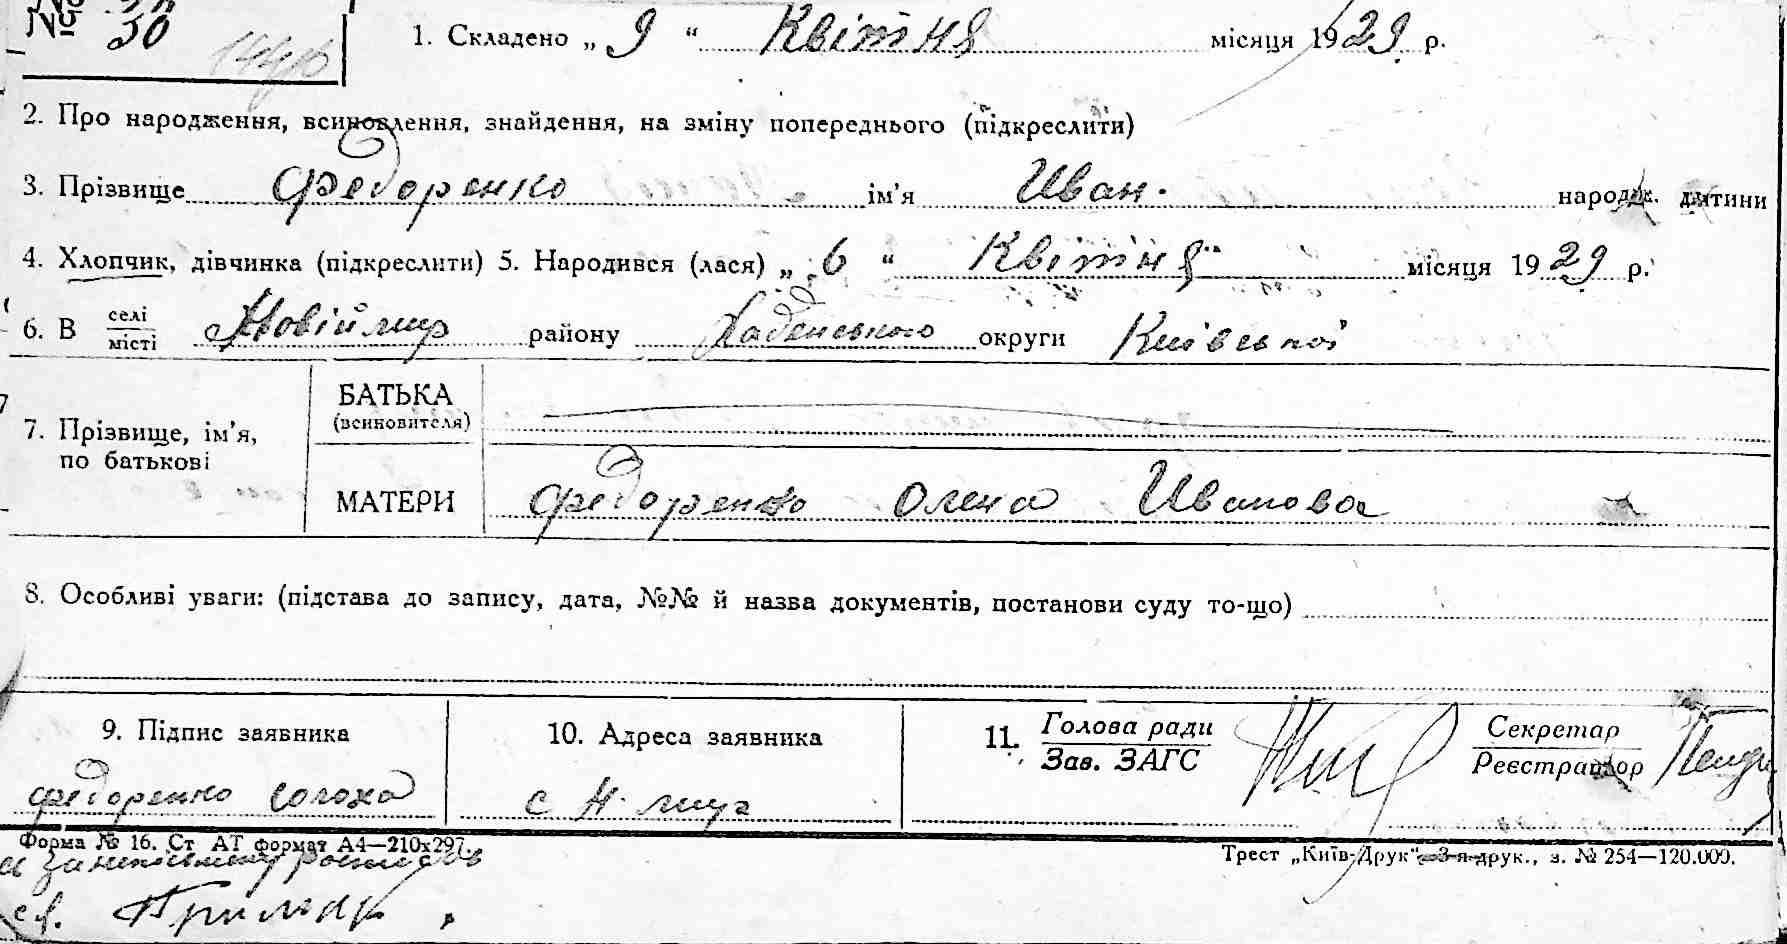 № 30
1. Складено „ 9 “ Квітня місяця 1929 р.
2. Про народження, всиновлення, знайдення, на зміну попереднього (підкреслити)
3. Прізвище Федоренко ім’я Иван. народж. дитини
4. Хлопчик, дівчинка (підкреслити) 5. Народився (лася) „ 6 “ Квітня місяця 1929 р.
6. В селі місті Новій мир району округи Київської
7. Прізвище, ім’я, по батькові
БАТЬКА (всиновителя)
МАТЕРИ Федоренко Олена Иванова
8. Особливі уваги: (підстава до запису, дата, №№ й назва документів, постанови суду то-що)
9. Підпис заявника 10. Адреса заявника 11. Голова ради Зав. ЗАГС Секретар Реєстратор
федоренко солоха с Н. мир
Форма № 16. Ст АТ формат А4—210х297. Трест „Київ-Друк“ 3-я друк., з. № 254—120.000.